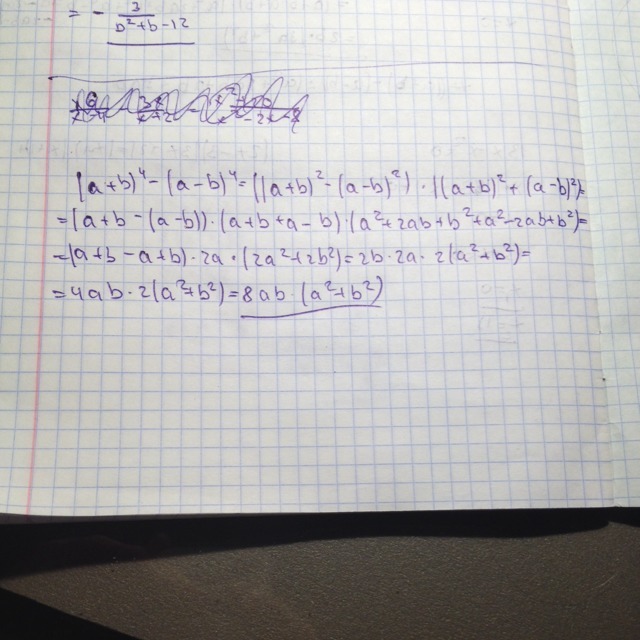 = - 3/(b²+b-12)
(a+b)⁴-(a-b)⁴=((a+b)²-(a-b)²)·((a+b)²+(a-b)²)=
=(a+b-(a-b))·(a+b+a-b)·(a²+2ab+b²+a²-2ab+b²)=
=(a+b-a+b)·2a·(2a²+2b²)=2b·2a·2(a²+b²)=
=4ab·2(a²+b²)=8ab·(a²+b²)